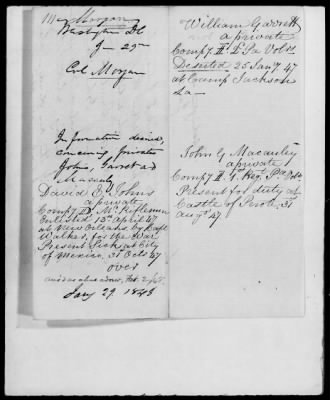 Mr Morgan
Washington DC
Jy 29th
Col. Morgan
Information desired,
concerning privates
Johns, Garret and
Macauly
David E. Johns
a private
Compy D, M. Riflemen
Enlisted 13th April 47
at New Orleans, by Capt
Walker, for the War
Present Sick at City
of Mexico, 31st Octr 47
over
Jany 29, 1848
William Garrett
a private
Compy 2 Pa Vols
Deserted 25 Jany 47
at Camp Jackson
La —
John G Macauley
a private
Compy 1 Reg. Pa Vols
Present for duty at
Castle of Perote, 31
Augt 47